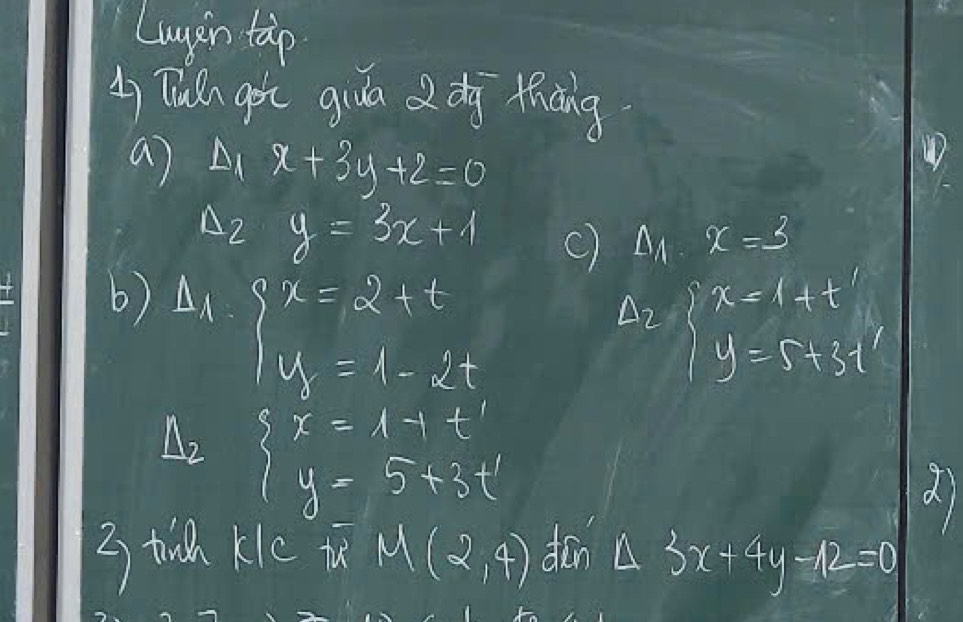 Luyện tập.
1) Tính góc giữa 2 đg̅ thẳng.
a) Δ1 x+3y+2=0
Δ2 y = 3x+1
b) Δ1. { x = 2+t
y = 1-2t
Δ2 { x = 1+t'
y = 5+3t'
c) Δ1. x=3
Δ2 { x=1+t'
y=5+3t'
2) tính k/c từ M(2,4) đến Δ 3x+4y-12=0
2)